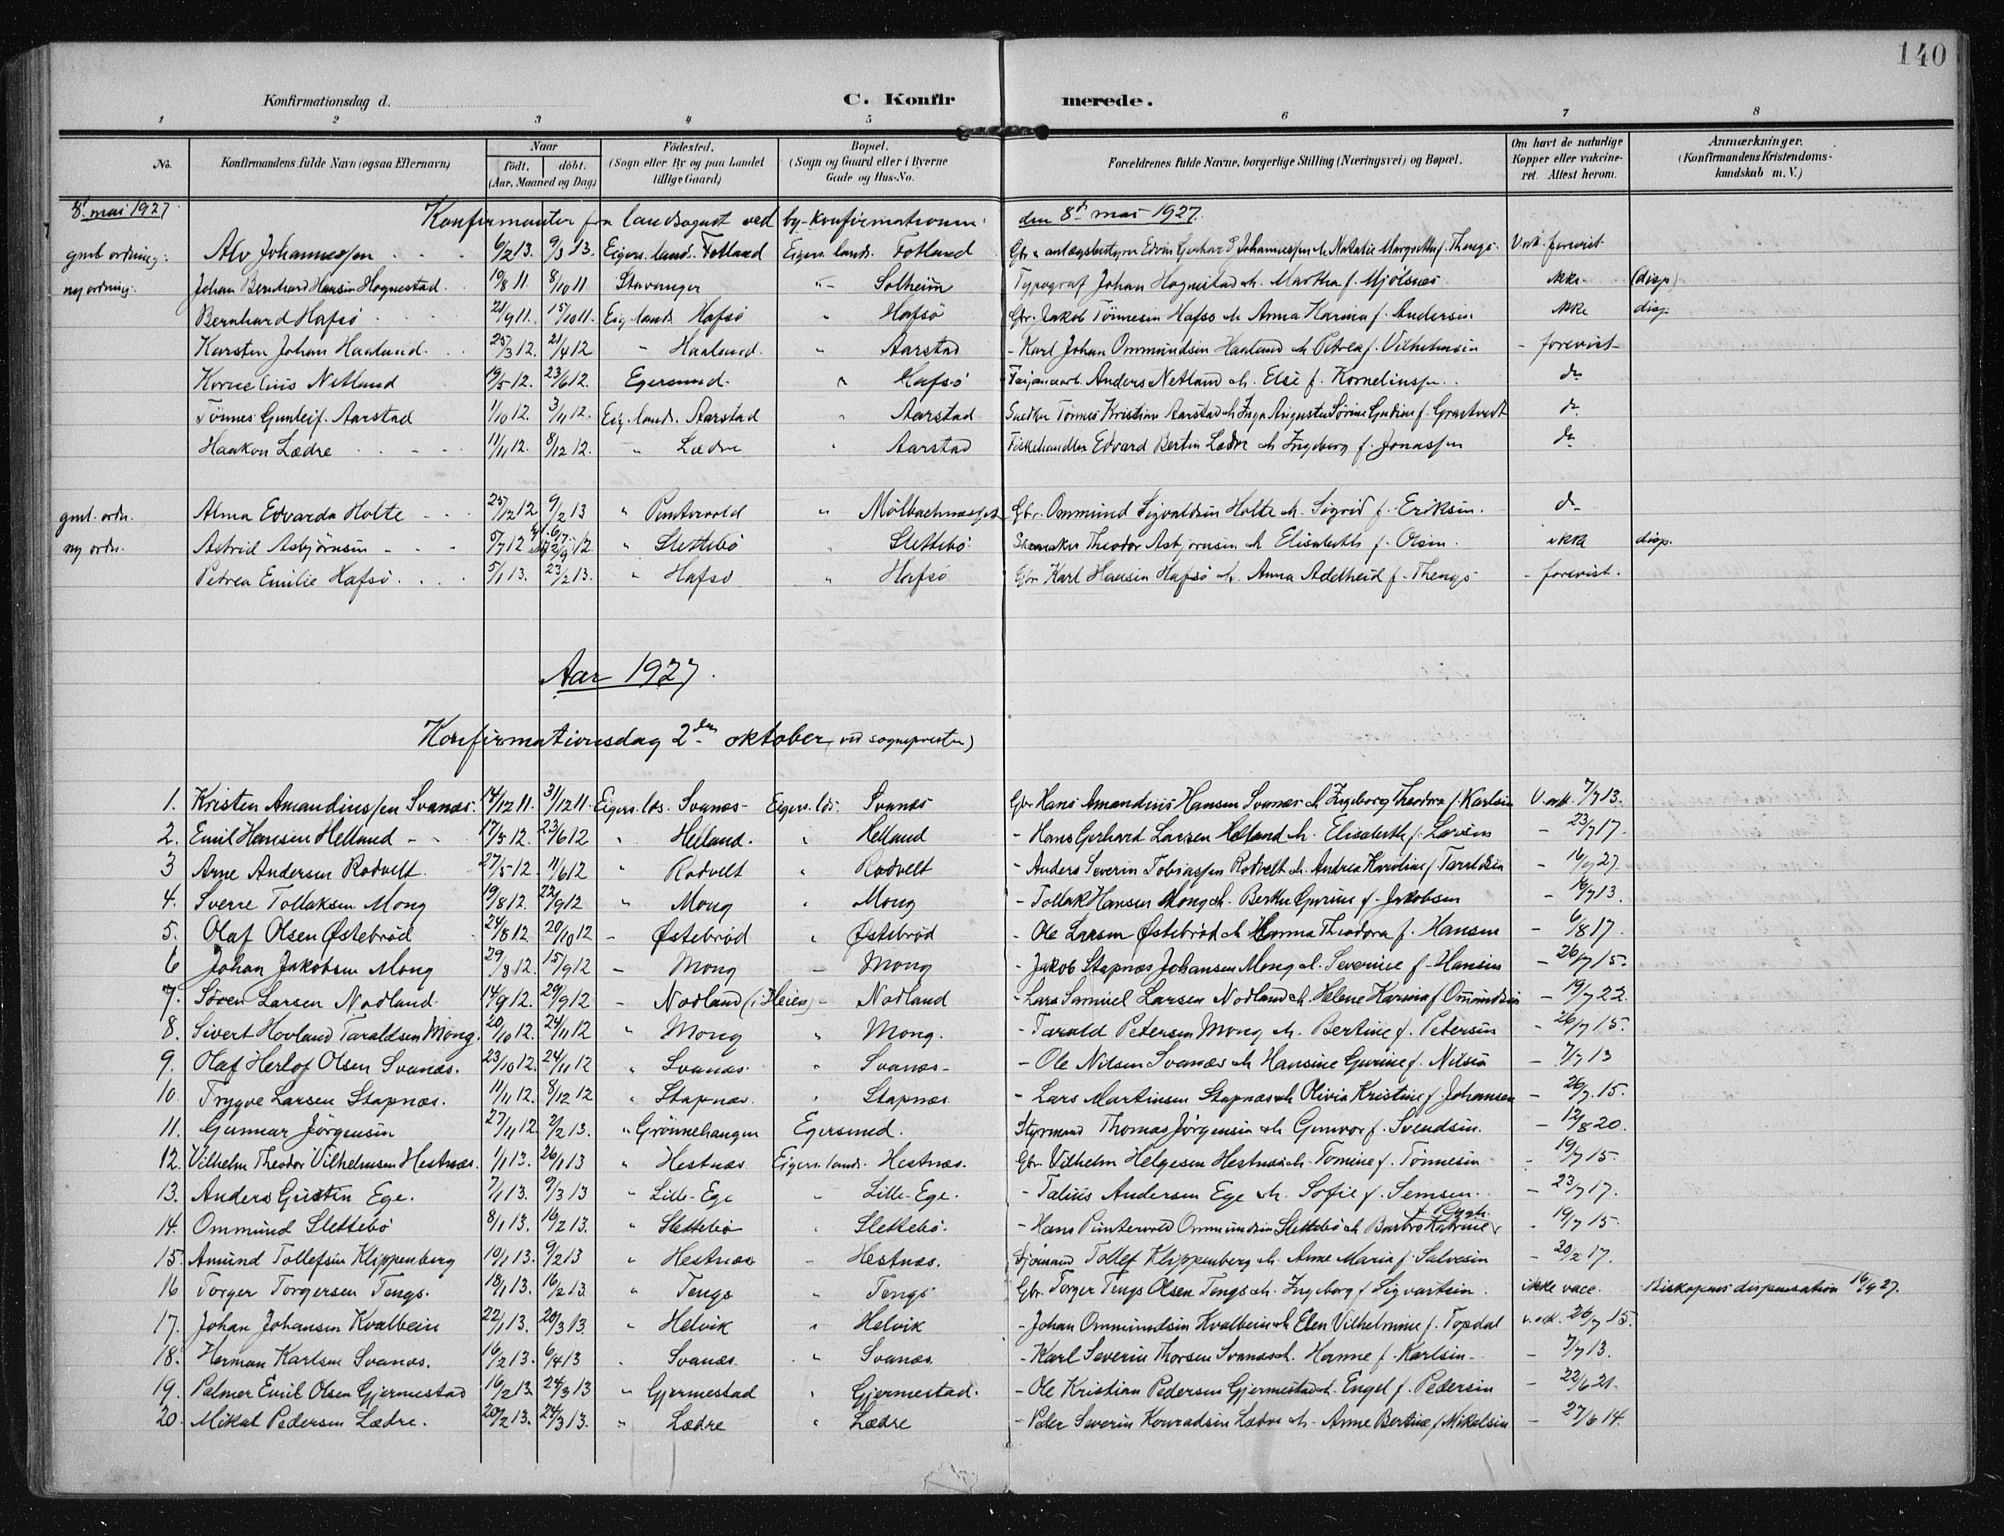 140
Konfirmationsdag d. C. Konfir merede.
1 2 3 4 5 6 7 8
No. Konfirmandens fulde Navn (ogsaa Efternavn) Naar født. døbt. (Aar, Maaned og Dag) Fødested. (Sogn eller By og paa Landet tillige Gaard) Bopæl. (Sogn og Gaard eller i Byerne Gade og Hus-No. Forældrenes fulde Navne, borgerlige Stilling (Næringsvei) og Bopæl. Om havt de naturlige Kopper eller vakcineret. Attest herom. Anmærkninger. (Konfirmandens Kristendomskundskab m. V.)
8. mai 1927 Konfirmanter fra landsognet ved by-konfirmationen den 8de mai 1927.
gml. ordning: Alv Johannessen 6/2 13. 9/3 13. Eigers. lands. Fotland Eigers. lands. Fotland Edvin Gerhard Johannessen & Natalie f. Thengs. V. att. forevist
ny ordning: Johan Bernhard Hansen Hognestad 19/8 11. 8/10 11 Stavanger Solheim Typograf Johan Hognestad & Martha f. Mjölsnes ikke (disp)
Bernhard Hafsö 21/9 11. 15/10 11. Eig. lands. Hafsö " Hafsö Gbr. Jakob Tönnesen Hafsö & Anna Karina f. Andersen ikke disp.
Karsten Johan Haaland 25/3 12. 21/4 12 " Haaland. " Aarstad - Karl Johan Ommundsen Haaland & Petrea f. Vilhelmsen - forevist
Kornelius Netland 19/5 12. 23/6 12. Egersund. " Hafsö Anders Netland & Else f. Korneliussen do
Tönnes Gunleif. Aarstad 1/10 12. 3/11 12. Eig. lands. Aarstad " Aarstad Snedker Tönnes Kristian Aarstad & Inga Augusta Sörine Gudine f. do
Haakon Lædre 11/11 12. 8/12 12. " Lædre " Aarstad Fiskehandler Edvard Bertin Lædre & Ingeborg f. Jonassen do
gml. ordn. Alma Edvarda Holte 25/12 12 9/2 13 " Puntervold " Gbr. Ommund Sigvaldsen Holte & Sigrid f. Eriksen. do
ny ordn. Astrid Asbjørnsen 5/7 12 " Slettebö " Slettebö Theodor Asbjørnsen & Elisabeth f. Olsen ikke disp.
Petrea Emilie Hafsö 5/1 13. 23/2 13. " Hafsö " Hafsö Gbr Karl Hansen Hafsö & Anna Adelheid f. Thengs - forevist.
Aar 1927.
Konfirmationsdag 2den oktober (ved sognepresten)
1. Kristen Amandinssen Svanæs. 14/12 11. 31/12 11. Eigers. lds. Svanæs Eigers. lds. Svanæs Gbr. Hans Amandius Hansen Svanæs & Ingeborg Theodora f. Karlsen V. att. 7/7 13.
2. Emil Hansen Helland 17/5 12. 23/6 12 " Helland. " Helland - Hans Gerhard Larsen Helland & Elisabeth f. Larsen - 23/7 17.
3 Arne Andersen Rodvelt. 27/5 12. 11/6 12 " Rodvelt " Rodvelt - Anders Severin Tobiassen Rodvelt & Andrea Karoline f. Taraldsen - 27.
4. Sverre Tollaksen Mong 19/8 12. 22/9 12 " Mong " Mong - Tollak Hansen Mong & Berthe Gurine f. Jakobsen - 16/7 13.
5. Olaf Olsen Østebrød 24/8 12. 20/10 12 - Østebrød " Østebrød - Ole Larsen Østebrød & Hanna Theodora f. Hansen - 6/8 17.
6 Johan Jakobsen Mong 29/8 12. 15/9 12 - Mong - Mong - Jakob Stapnæs Johansen Mong & Severine f. Hansen - 26/7 15.
7. Søren Larsen Nodland. 14/9 12. 29/9 12 - Nodland (i Heien) - Nodland - Lars Samuel Larsen Nodland & Helene Karina f. Ommundsen - 19/7 22.
8. Sivert Hovland Taraldsen Mong. 20/10 12. 24/11 12 " Mong " Mong. - Tarald Petersen Mong & Bertine f. Petersen - 26/7 15.
9. Olaf Herlof Olsen Svanæs. 23/10 12. 24/11 12 " Svanæs. " Svanæs - Ole Nilsen Svanæs & Hansine Gurine f. Nilsen - 7/7 13
10. Trygve Larsen Stapnæs. 11/11 12. 8/12 12 " Stapnæs. " Stapnæs. - Lars Martinsen Stapnæs & Olivia Kristine f. Johansen - 26/7 15.
11. Gunnar Jørgensen 27/11 12. 2/2 13. " Grönnehaugen Egersund. Styrmand Thomas Jørgensen & Gunvor f. Svendsen. - 12/8 20.
12. Vilhelm Theodor Vilhelmsen Hestnæs. 1/1 13. 26/1 13 " Hestnæs Eigers. lands. Hestnæs. Gbr. Vilhelm Helgesen Hestnæs & Tomine f. Tönnesen - 19/7 15.
13. Anders Gustin Ege. 7/1 13. 9/3 13 " Lille-Ege " Lille-Ege. - Talius Andersen Ege & Sofie f. Semsen. - 23/7 17.
14. Ommund Slettebö 8/1 13. 16/2 13. " Slettebö " Slettebö. - Hans Puntervold Ommundsen Slettebö & Barbro Katrine - 19/7 15.
15. Amund Tollefsen Klippenberg 10/1 13. 9/2 13 " Hestnæs - Hestnæs. Sjömand Tollef Klippenberg & Anne Maria f. Salvesen - 20/2 17.
16 Torger Torgersen Tengs. 18/1 13. 16/2 13. " Tengs " Tengs Gbr. Torger Tengs Olsen Tengs & Ingeborg f. Sigvartsen. ikke vacc. Biskopens dispensation 16/9 27.
17. Johan Johansen Kvalbein 22/1 13. 20/3 13. " Helvik " Helvik - Johan Ommundsen Kvalbein & Elen Vilhelmine f. Topdal v. att. 26/7 15.
18. Herman Karlsen Svanæs. 16/2 13. 6/4 13 " Svanæs. " Svanæs. - Karl Severin Thorsen Svanæs & Hanne f. Karlsen - 7/7 13.
19. Palmer Emil Olsen Gjermestad 16/2 13. 24/3 13 " Gjermestad " Gjermestad. - Ole Kristian Pedersen Gjermestad & Engel f. Pedersen - 22/6 21.
20. Mikal Pedersen Lædre. 20/2 13. 24/3 13. " Lædre " Lædre - Peder Severin Konradsen Lædre & Anne Bertine f. Mikalsen - 27/6 14.